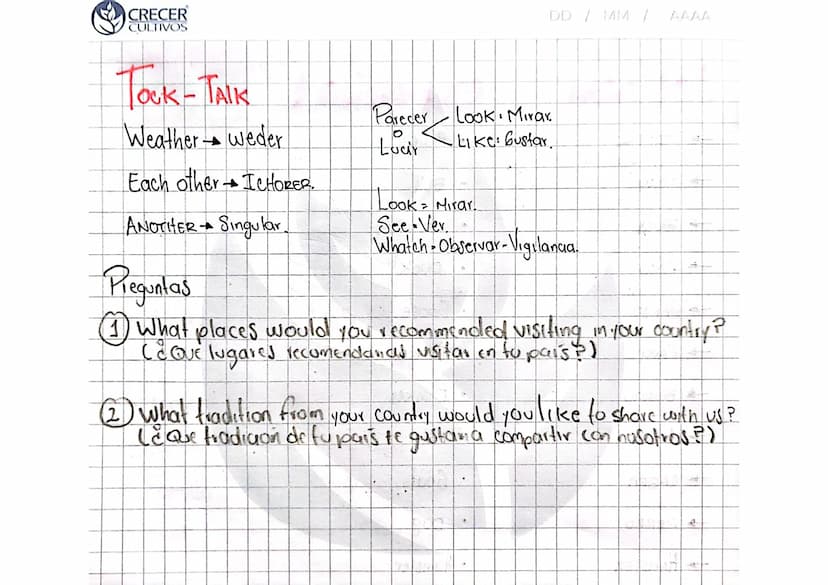 CRECER
CULTIVOS
DD / MM / AAAA
Tock-Talk
Weather → weder
Each other → ICHORER.
ANOTHER → Singular.
Parecer
o
Lucir
Look: Mirar.
Like: Gustar.
Look = Mirar.
See = Ver.
Whatch = Observar-Vigilancia.
Preguntas
① What places would you recommended visiting in your country?
(¿Que lugares recomendarias visitar en tu país?)
② What tradition from your country would you like to share with us?
(¿Que tradicion de tu país te gustaria compartir con nosotros?)